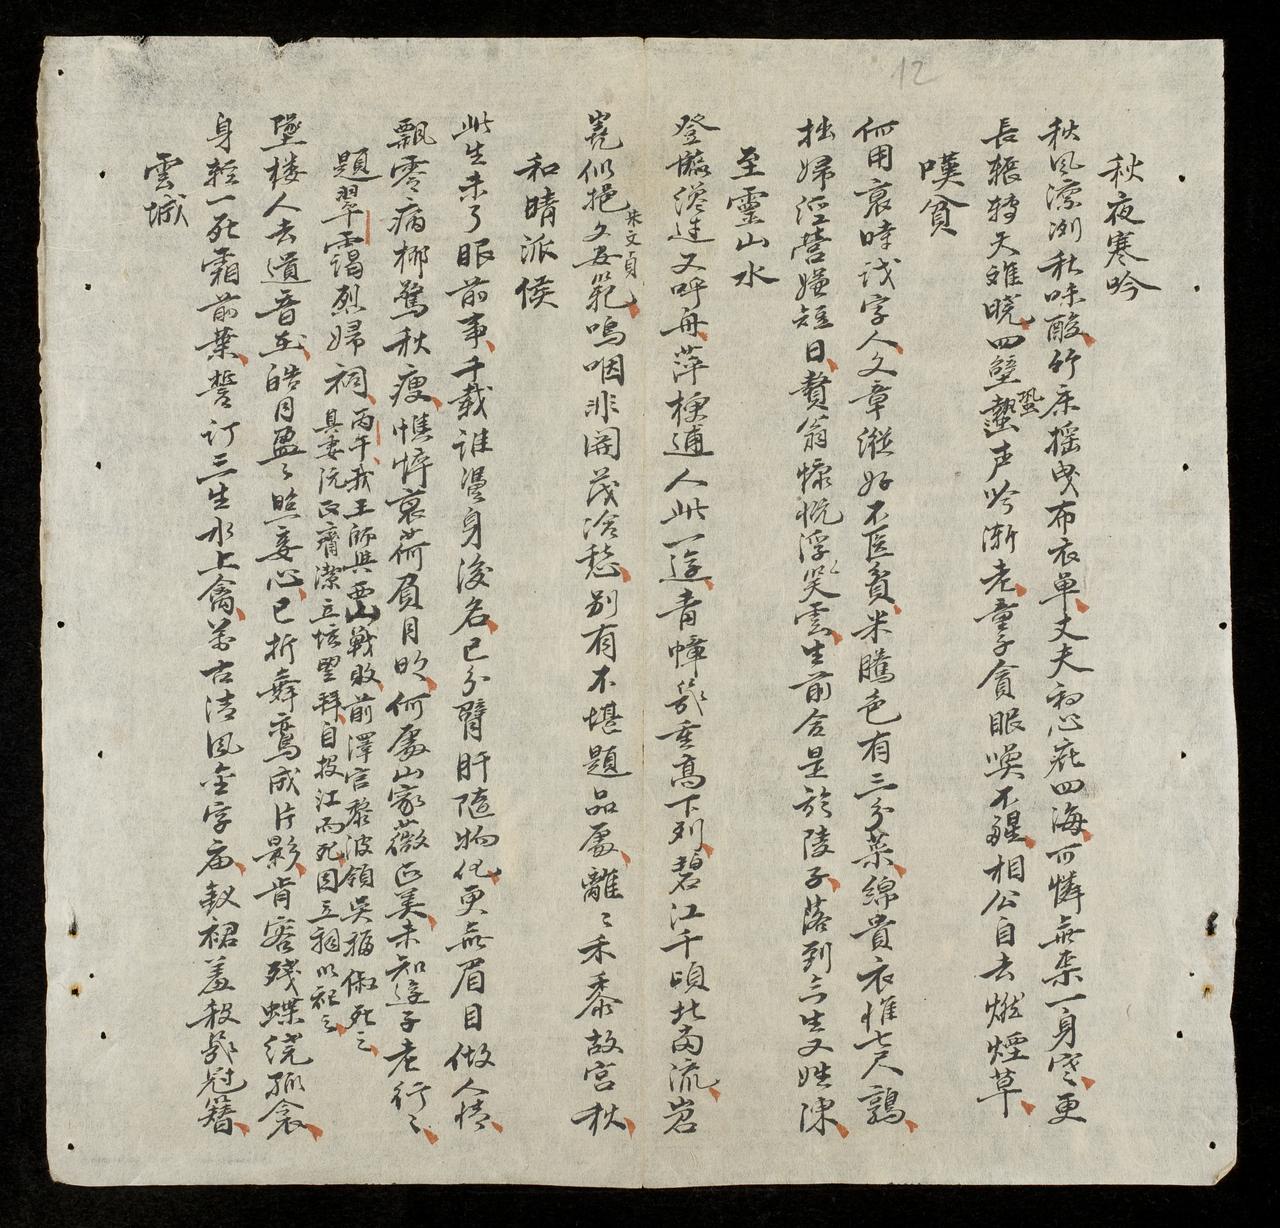 12
秋夜寒吟
秋風凛冽秋味酸竹床搖曳布衣單丈夫初心庇四海可憐無柰一身寒更
長輾轉天難曉四壁蟄蛩声吟漸老童子貪眼喚不醒相公自去燃煙草
嘆貧
何用哀時識字人文章縱好不医貧米騰色有三分菜綿貴衣惟七尺鶉
拙婦經営嫌短日賛翁慷慨浮笑雲生前合是於陵子落到今生又姓陳
至靈山水
登臨後迬又呼舟萍梗逋人此一遊青嶂幾重高下列碧江千頃北南流岩
嶤似挹文安範嗚咽非関茂洽愁別有不堪題品處離〻禾黍故宮秋
朱文貞
和晴派侯
此生未了眼前事千載誰漫身後名已分臂肝隨物化更無眉目做人情
飄零病柳驚秋瘦憔悴裏荷負月明何處山家薇正美未知遊子老行〻
題翠靄烈婦祠
丙午我王師與西山戰敗前澤官黎波領吳福俅死之
具妻阮氏齋潔立坛望拜自投江而死因立祠以祀之
墮楼人去遺音在皓月盈〻照妾心已折舞鸞成片影肯容殘蝶绕孤衾
身輕一死霜前葉誓订三生水上禽萬古清風金字庙釵裙羞殺幾冠簪
雲城